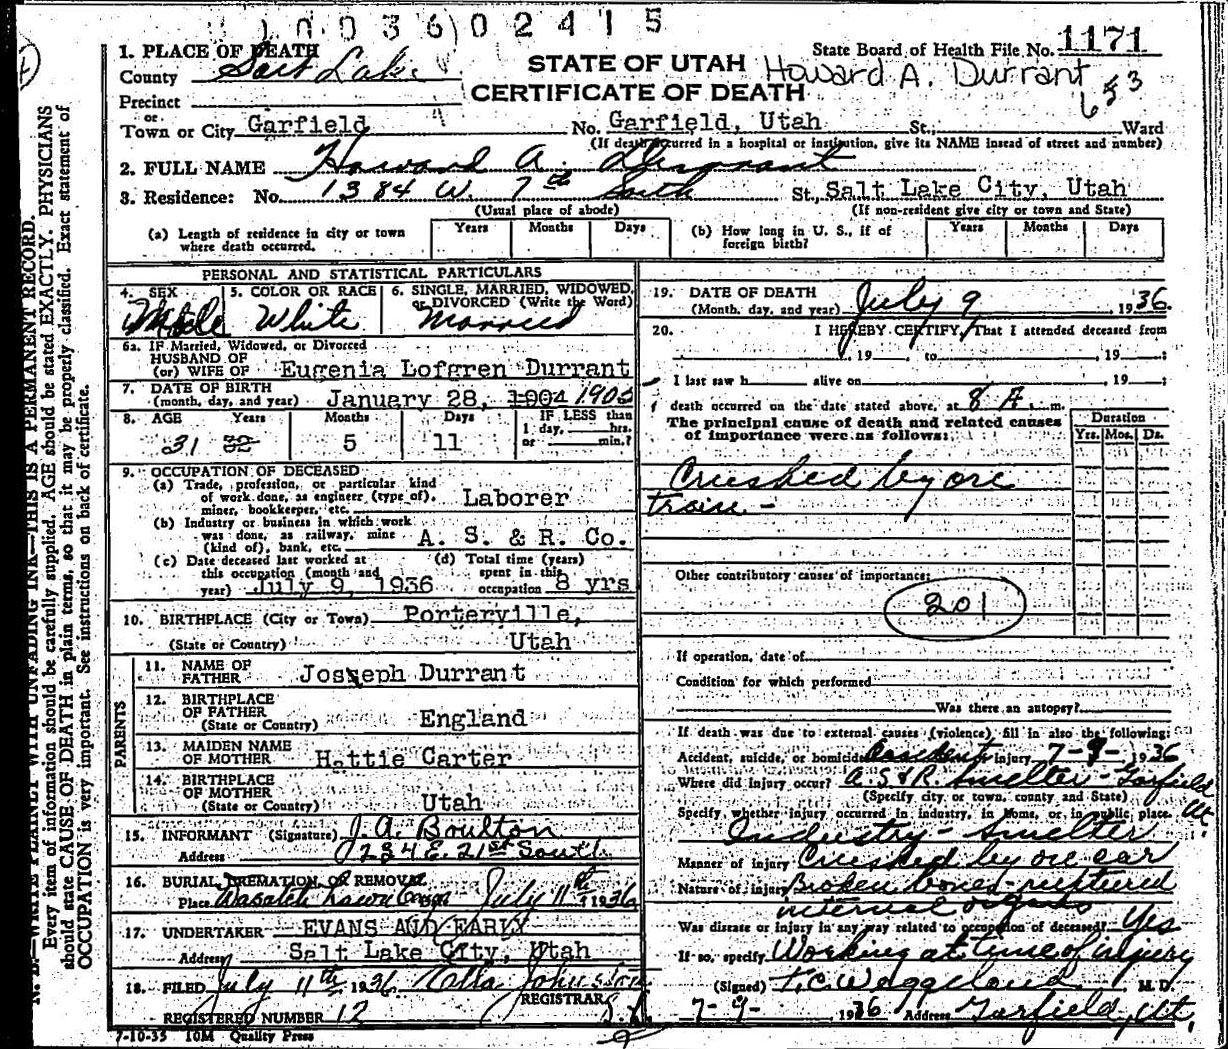 1003602415
1. PLACE OF DEATH
County Salt Lake
STATE OF UTAH
CERTIFICATE OF DEATH
State Board of Health File No. 1171
Howard A. Durrant
Precinct
or
Town or City Garfield No. Garfield, Utah St.; Ward
(If death occurred in a hospital or institution, give its NAME insead of street and number)
2. FULL NAME Howard A. Durrant
3. Residence: No. 1384 W. 7th South St., Salt Lake City, Utah
(Usual place of abode) (If non-resident give city or town and State)
(a) Length of residence in city or town where death occurred. Years Months Days
(b) How long in U. S., if of foreign birth? Years Months Days
PERSONAL AND STATISTICAL PARTICULARS
4. SEX Male
5. COLOR OR RACE White
6. SINGLE, MARRIED, WIDOWED, or DIVORCED (Write the Word) Married
6a. IF Married, Widowed, or Divorced
HUSBAND OF
(or) WIFE OF Eugenia Lofgren Durrant
7. DATE OF BIRTH
(month, day, and year) January 28, 1904 1905
8. AGE Years Months Days IF LESS than
1 day, hrs.
or min.?
31 32 5 11
9. OCCUPATION OF DECEASED
(a) Trade, profession, or particular kind
of work done, as engineer (type of),
miner, bookkeeper, etc. Laborer
(b) Industry or business in which work
was done, as railway, mine
(kind of), bank, etc. A. S. & R. Co.
(c) Date deceased last worked at
this occupation (month and
year) July 9, 1936
(d) Total time (years)
spent in this
occupation 8 yrs
10. BIRTHPLACE (City or Town) Porterville,
(State or Country) Utah
PARENTS
11. NAME OF
FATHER Joseph Durrant
12. BIRTHPLACE
OF FATHER
(State or Country) England
13. MAIDEN NAME
OF MOTHER Hattie Carter
14. BIRTHPLACE
OF MOTHER
(State or Country) Utah
15. INFORMANT (Signature) J. A. Boulton
Address 234 E. 21st South
16. BURIAL, CREMATION, OR REMOVAL
Place Wasatch Lawn July 11th 1936
17. UNDERTAKER EVANS AND EARLY
Address Salt Lake City, Utah
18. FILED July 11th 1936
REGISTRAR
REGISTERED NUMBER 12
7-10-35 10M Quality Press
19. DATE OF DEATH
(Month, day, and year) July 9 1936.
20. I HEREBY CERTIFY, That I attended deceased from
, 19 , to , 19 ;
I last saw h alive on , 19 ;
death occurred on the date stated above, at 8 A. m.
The principal cause of death and related causes
of importance were as follows:
Duration
Yrs. Mos. Ds.
Crushed by ore
train -
Other contributory causes of importance:
201
If operation, date of
Condition for which performed
Was there an autopsy?
If death was due to external causes (violence) fill in also the following:
Accident, suicide, or homicide Accident injury 7-9- 1936
Where did injury occur? A. S & R. Smelter - Garfield
Ut.
(Specify city or town, county and State)
Specify whether injury occurred in industry, in home, or in public place.
Industry - Smelter
Manner of injury Crushed by ore car
Nature of injury Broken bones - ruptured
internal organs
Was disease or injury in any way related to occupation of deceased? Yes
If so, specify Working at time of injury
(Signed) M. D.
7-9- 1936 Address Garfield, Ut.
N. B.—WRITE PLAINLY WITH UNFADING INK—THIS IS A PERMANENT RECORD.
Every item of information should be carefully supplied. AGE should be stated EXACTLY. PHYSICIANS
should state CAUSE OF DEATH in plain terms, so that it may be properly classified. Exact statement of
OCCUPATION is very important. See instructions on back of certificate.